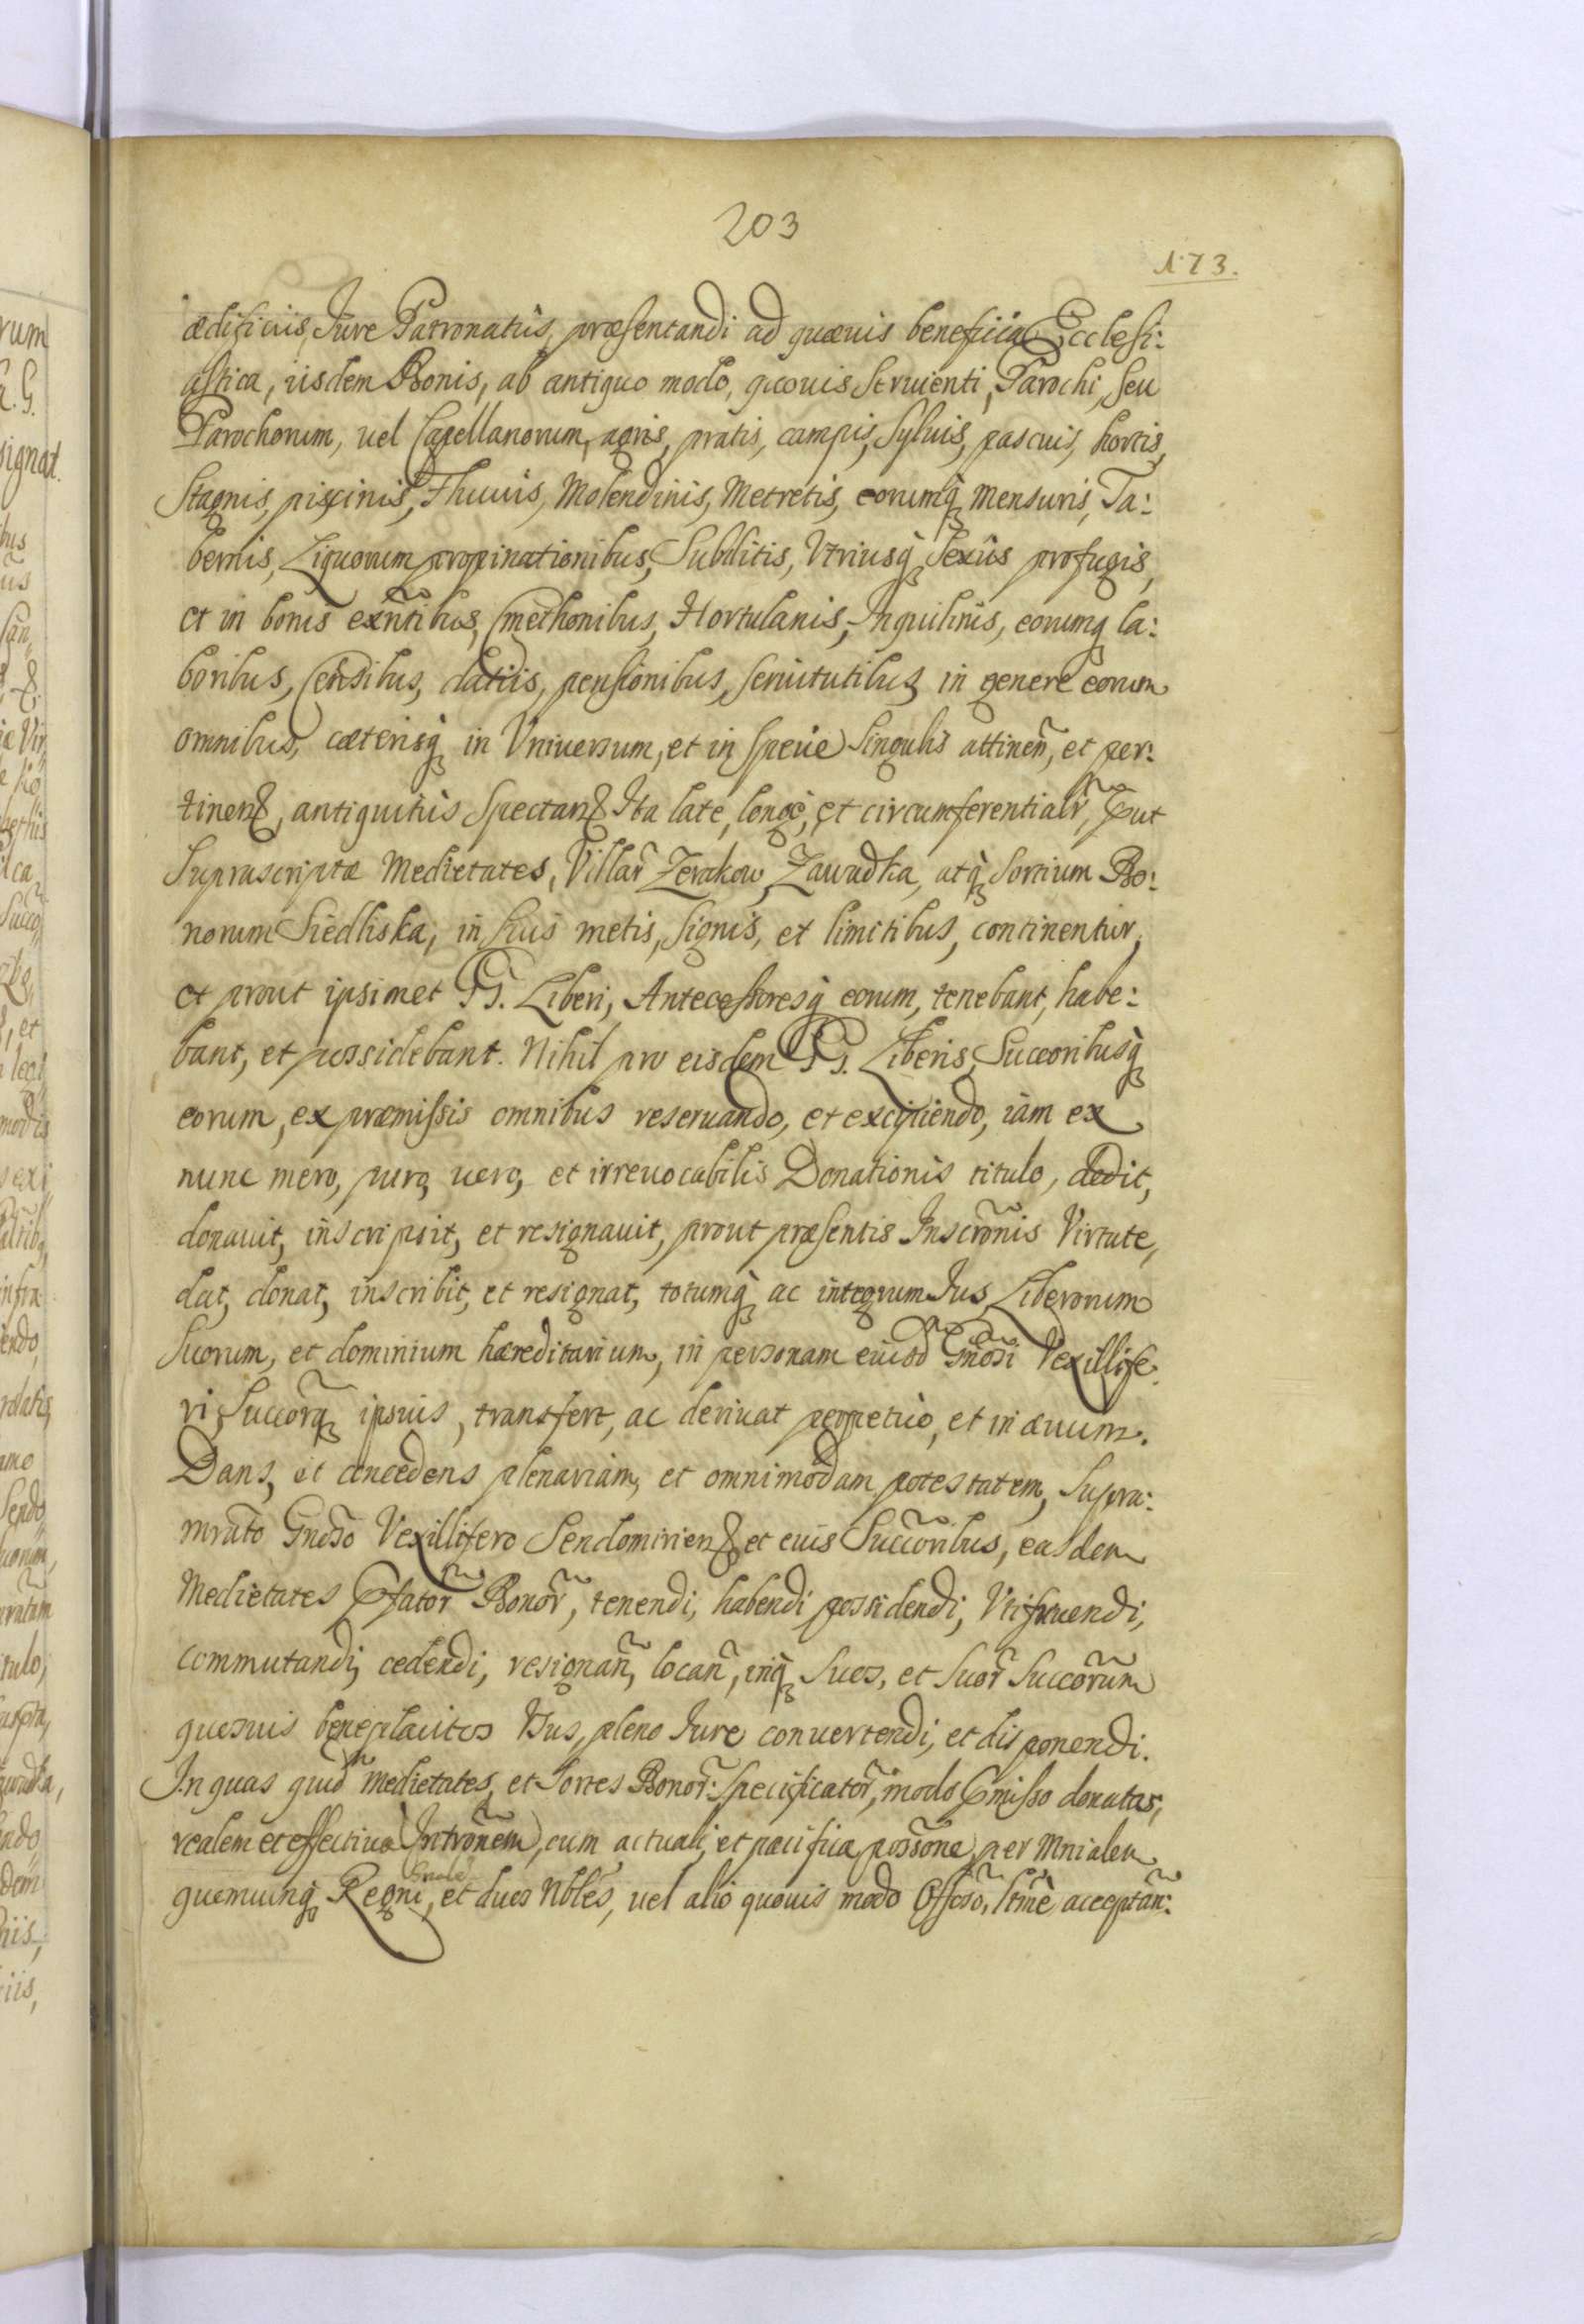 203
N.73.
ædificiis, Jure Patronatus, præsentandi ad quævis beneficia Ecclesi:
astica, iisdem Bonis, ab antiquo modo, quovis servienti, Parochi, seu
Parochorum, vel Capellanorum, agris, pratis, campis, Sylvis, pascuis, hortis,
Stagnis, piscinis, Fluvis, Molendinis, Metretis, eorumq̀ mensuris, Ta:
bernis, Liquorum propinationibus, Subditis, Vtriusq̀ Sexûs profugis,
et in bonis exñtibus, Cmethonibus, Hortulanis, Inquilinis, eorumq la:
boribus, Censibus, datiis, pensionibus, servitutibus, in genere eorum
omnibus, cæterisq̀ in Vniversum, et in specie singulis attineñ, et per:
tinen, antiquitùs Spectan Ita late, longè, et circumferentialr̃, put
Suprascriptæ Medietates, Villar̃ Zerakow, Zawadka, atq̀ Sortium Bo:
norum Siedliska, in suis metis, signis, et limitibus, continentur,
et prout ipsimet GG. Liberi, Antecessoresq̀ eorum, tenebant, habe:
bant, et possidebant. Nihil pro eisdem GG. Liberis, Succoribusq̀
eorum, ex præmissis omnibus reservando, et excipiendo, iam ex
nunc mero, puro, vero, et irrevocabilis Donationis titulo, dedit,
donavit, inscripsit, et resignavit, prout præsentis Inscrõnis Virtute,
dat, donat, inscribit, et resignat, totumq̀ ac integrum Jus, Liberorum
Suorum, et dominium hæreditarium, in personam eiusd Gñosi Vexillife:
ri, Succorq ipsius, transfert, ac derivat perpetuò, et in ævum.
Dans, et concedens plenariam, et omnimodam potestatem, Supra:
mrato Gnoso Vexillifero Sendomirien et eius Succoribus, easdem
Medietates Pfator̃ Bonor̃, tenendi, habendi possidendi, Vtifruendi,
commutandi, cedendi, resignañ, locañ, inq̀ suos, et suor̃ Succorum
quosvis beneplacitos Vsus, pleno Jure convertendi, et disponendi.
In quas quid Medietates, et Sortes Bonor̃: Specificator̃, modo Pmisso donatas,
realem et effectivã Intrõnem, cum actuali, et pacifica possone, per Mnialem
quemcunq̀ Regni, et duos Nbles, vel alio quovis modo Offoso, ltimè acceptan: